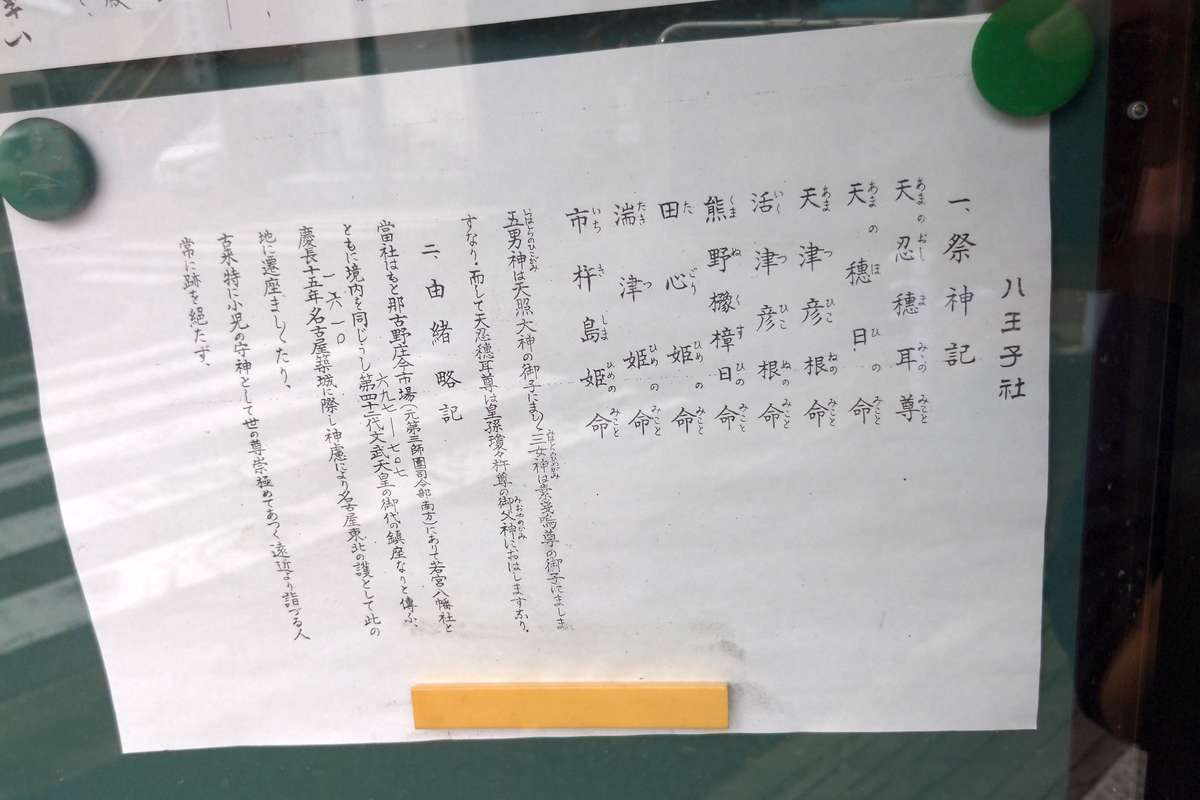 八王子社
一、祭神記
天忍穂耳尊
天穂日命
天津彦根命
活津彦根命
熊野櫲樟日命
田心姫命
湍津姫命
市杵島姫命
五男神は天照大神の御子にまし〱三女神は素戔嗚尊の御子にましま
すなり、而して天忍穂耳尊は皇孫瓊々杵尊の御父神におはしますなり。
二、由緒略記
當社はもと那古野庄今市場(元第三師團司令部南方)にありて若宮八幡社と
ともに境内を同じうし第四十二代文武天皇の御代の鎮座なりと傳ふ、
六九七—七〇七
慶長十五年名古屋築城に際し神慮により名古屋東北の護として此の
一六一〇
地に遷座まし〱たり、
古来特に小児の守神として世の尊崇極めてあつく遠近より詣づる人
常に跡を絶たず、